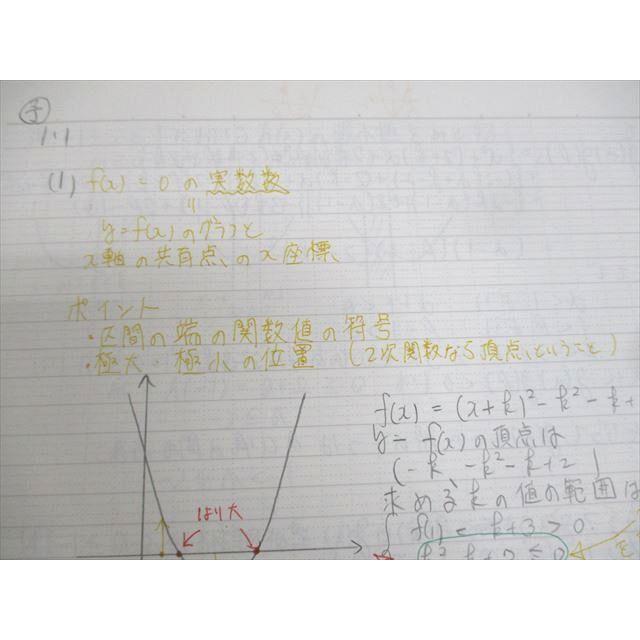 予
1・1
(1) f(x) = 0 の 実数数
||
y=f(x) のグラフと
x軸の共有点、の x座標、
ポイント
・区間の端の関数値の符号
・極大・極小の位置 (2次関数なら頂点、ということ)
f(x) = (x+k)² - k² - k +
y = f(x) の頂点は
(-k -k² - k + 2)
求めるkの値の範囲は
はり大
f(1) = k+3 > 0